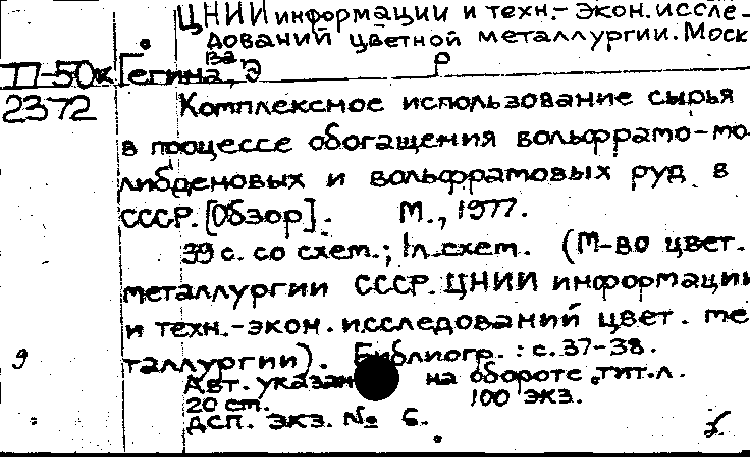 ЦНИИ информации и техн.- экон. иссле-
дований цветной металлургии. Моск
П-50к Гегина, Э
2372 Комплексное использование сырья
в процессе обогащения вольфрамо-мо
либденовых и вольфрамовых руд в
СССР. [Обзор]. М., 1977.
39 с. со схем.; 1л.схем. (М-во цвет.
металлургии СССР. ЦНИИ информации
и техн.-экон. исследований цвет. ме
таллургии). Библиогр.: с. 37-38.
Авт. указан на обороте тит.л.
20 cm. 100 экз.
дсп. экз. № 6.